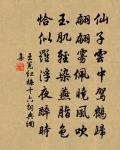 仙子雲中駕鶴歸
翩翩霧佩曉風吹
玉肌輕染燕脂色
恰似羅浮夜醉時
王冕紅梅十六詞典網
集